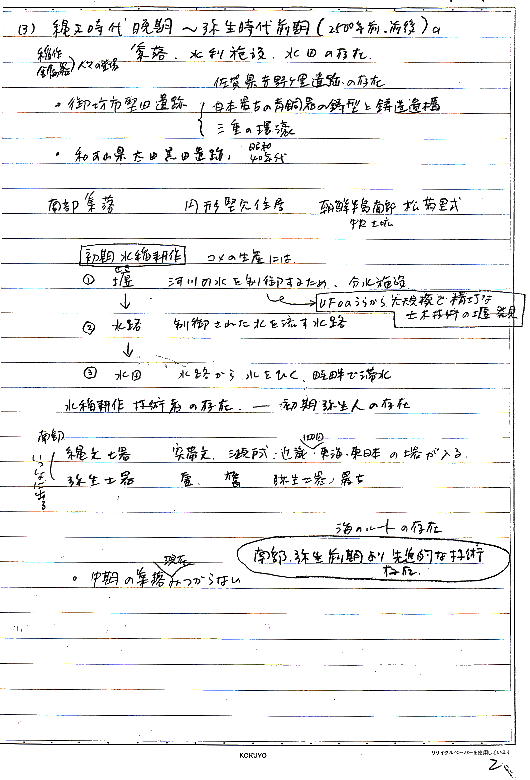 (3) 縄文時代晩期〜弥生時代前期(2500年前前後)の
稲作 金属器 人々の登場
集落、水利施設、水田の存在
佐賀県吉野ケ里遺跡の存在
・御坊市堅田遺跡 日本最古の青銅器の鋳型と鋳造遺構
三重の環濠
・和歌山県太田黒田遺跡、昭和40年代
南部集落 円形竪穴住居 朝鮮半島南部 松菊里式
初期水稲耕作 コメの生産には
① 堰 河川の水を制御するため、分水施設
↓ UFOのうちから大規模で精巧な土木技術の堰発見
② 水路 制御された水を流す水路
↓
③ 水田 水路から水をひく、畦畔で湛水
水稲耕作技術者の存在 ― 初期弥生人の存在
南部 いっしょに出る
縄文土器 突帯文、 近畿・四国・東海・東日本の土器が入る。
弥生土器 壷、甕 弥生土器、最古
海のルートの存在
南部、弥生前期より先進的な技術存在
・中期の集落 現在 みつからない
KOKUYO
リサイクルペーパーを使用しています
2